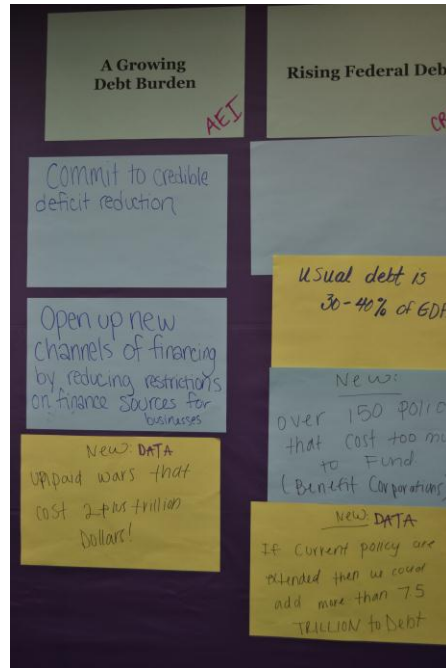 A Growing
Debt Burden
AEI
Commit to credible
deficit reduction
Open up new
channels of financing
by reducing restrictions
on finance sources for
businesses
New: DATA
unpaid wars that
cost 2 plus trillion
Dollars!
Rising Federal Deb
CR
Usual debt is
30-40% of GDP
New:
over 150 polic
that cost too mu
to Fund
(Benefit Corporations
New: DATA
If Current policy are
extended then we could
add more than 7.5
TRILLION to Debt